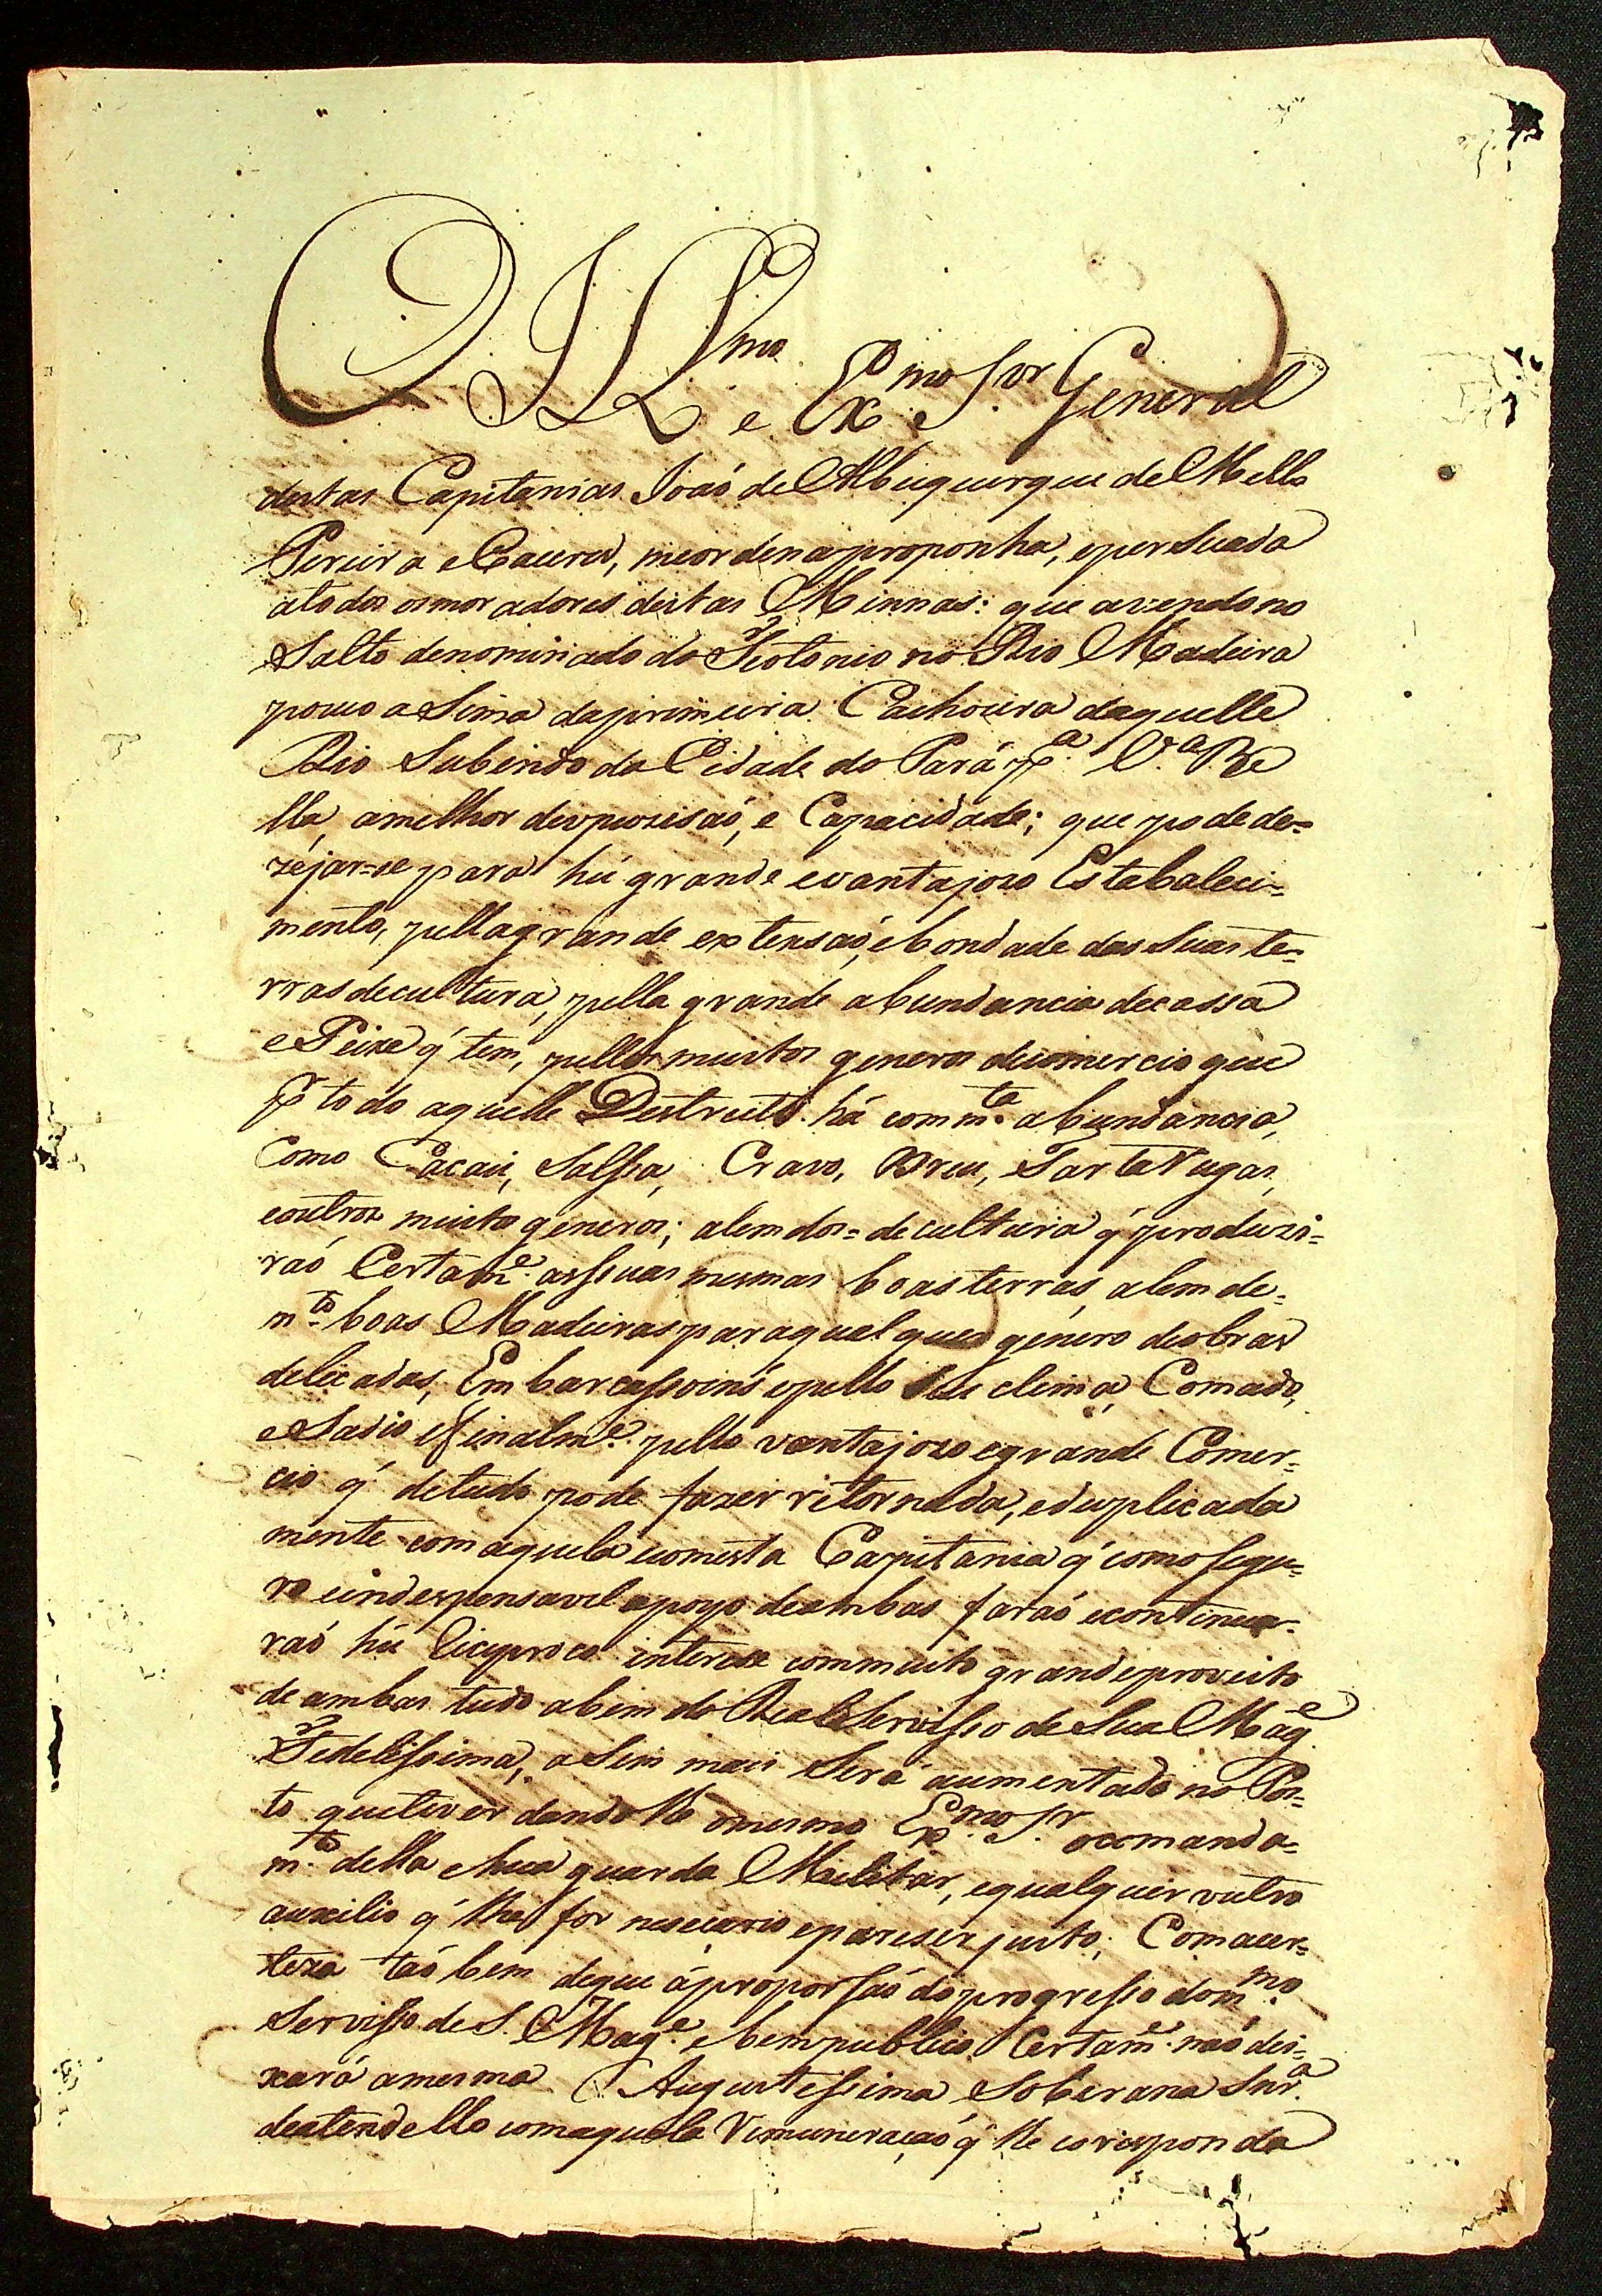 O Illmo. e Exmo. Sor. General
destas Capitanias Joaó de Albuquerque de Mello
Pereira e Caceres, me ordena proponha, e persuada
a todos os moradores destas Minnas: que avendo no
Salto denominado do Teotonio no Rio Madeira
pouco a Sima da primeira Cachoeira daquelle
Rio Subindo da Cidade do Pará pa. Va. Be
lla, a melhor despozisaó, e Capacidade; que pode de=
zejar=se para hú grande e vantajozo Estabaleci=
mento, pella grande extensaó, e bondade das Suas te=
rras de cultura, pella grande abundancia de cassa
e Peixe q' tem, pellos muitos generos de comercio que
pr. todo aquelle Destrito há com mta. abundancia,
Como Cacau, Salsa, Cravo, Breu, Tartarugas,
e outros muitos generos; alem dos= de cultura q' produzi=
raó Certame. as suas mesmas boas terras, alem de=
mto. boas Madeiras para qualquer género de obras
delicadas, Embarcassoins e pello seu clima, Comado,
e Sadio e finalme. pello vantajozo e grande Comer=
cio q' de tudo pode fazer retornada, e duplicada
mente com aquela e com esta Capitania q' como segu=
ro e indespensavel apoyo de ambas faraó e continua=
raó hú Reciproco interese com muito grande proveito
de ambas tudo a bem do Real Servisso de Sua Mage.
Fedelissima, a Sim mais Será aumentado no Pos=
to que tiver dando lhe o mesmo Exmo. Sr. o comanda=
mto. della e hua guarda Militar, e qualquer outro
auxilio q' lhe for nesesario e pareser justo; Com a cer=
teza taó bem de que á proporsaó do progresso do mmo.
Servisso de S. Mage. e bem publico Certame. naó dei=
xará a mesma Augustessima Soberana Snra.
de atendello com aquela Remuneraçaó q' lhe coresponda